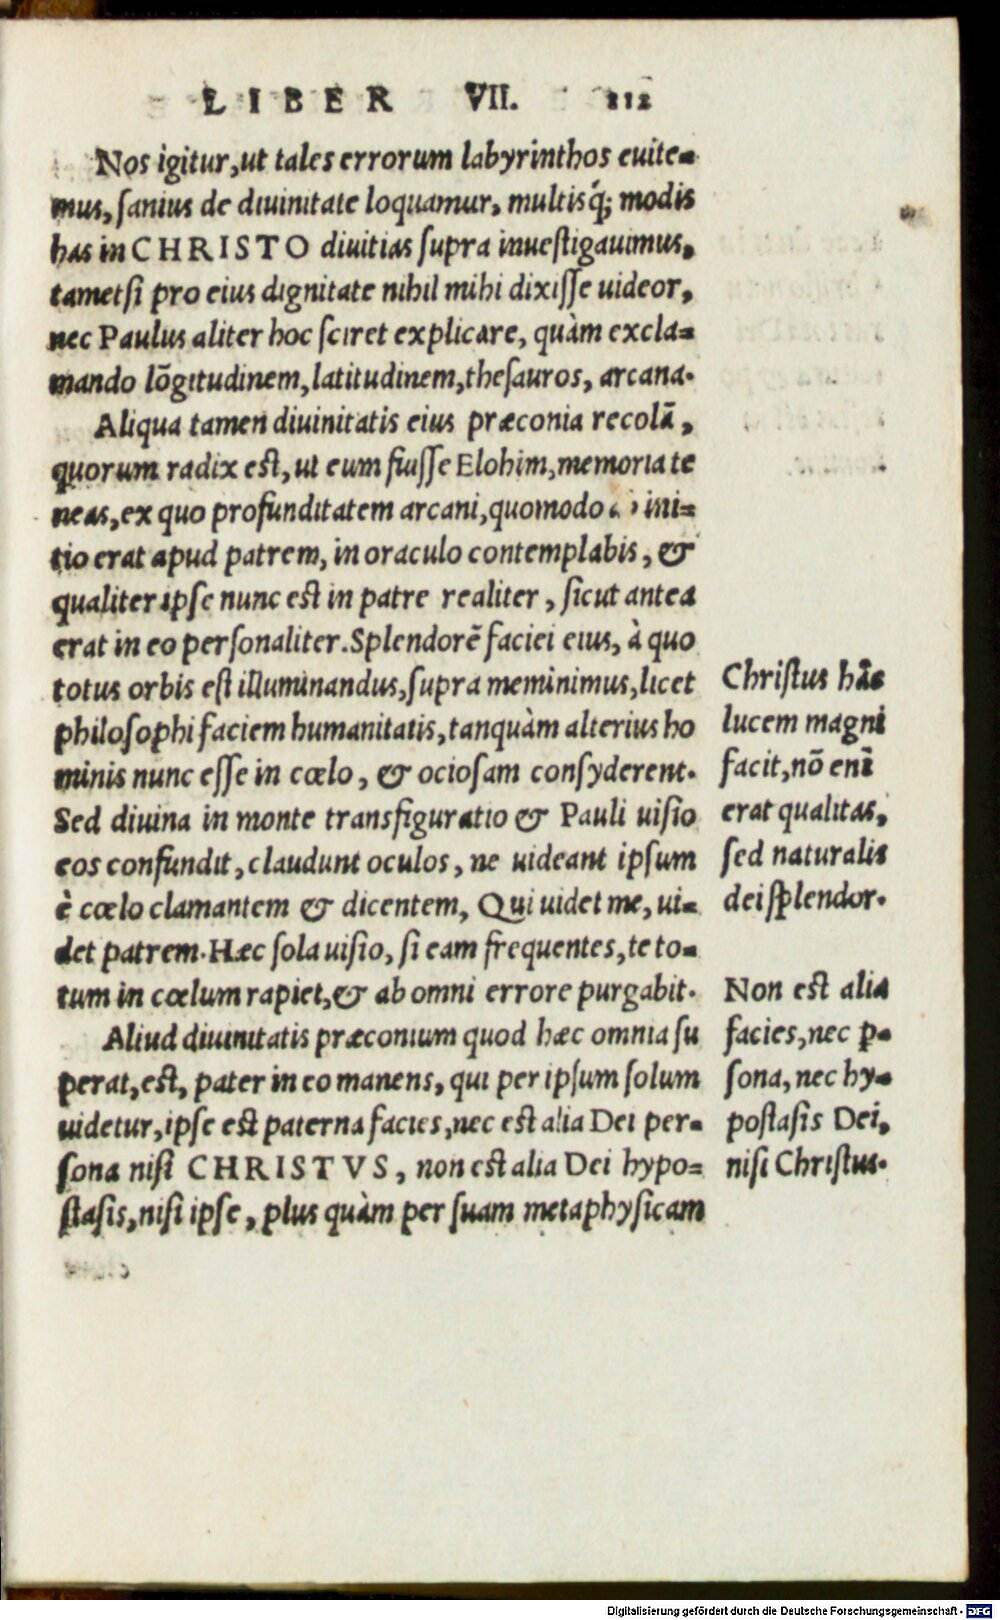 LIBER VII. 112
Nos igitur, ut tales errorum labyrinthos euite-
mus, ſanius de diuinitate loquamur, multisq́; modis
has in CHRISTO diuitias ſupra inueſtigauimus,
tametſi pro eius dignitate nihil mihi dixiſſe uideor,
nec Paulus aliter hoc ſciret explicare, quàm excla-
mando lõgitudinem, latitudinem, theſauros, arcana.
Aliqua tamen diuinitatis eius præconia recolã,
quorum radix eſt, ut eum fuiſſe Elohim, memoria te
neas, ex quo profunditatem arcani, quomodo ini-
tio erat apud patrem, in oraculo contemplabis, &
qualiter ipſe nunc eſt in patre realiter, ſicut antea
erat in eo perſonaliter. Splendorẽ faciei eius, à quo
totus orbis eſt illuminandus, ſupra meminimus, licet
philoſophi faciem humanitatis, tanquàm alterius ho
minis nunc eſſe in cœlo, & ocioſam conſyderent.
Sed diuina in monte transfiguratio & Pauli uiſio
eos confundit, claudunt oculos, ne uideant ipſum
è cœlo clamantem & dicentem, Qui uidet me, ui-
det patrem. Hæc ſola uiſio, ſi eam frequentes, te to-
tum in cœlum rapiet, & ab omni errore purgabit.
Aliud diuinitatis præconium quod hæc omnia ſu
perat, eſt, pater in eo manens, qui per ipſum ſolum
uidetur, ipſe eſt paterna facies, nec eſt alia Dei per-
ſona niſi CHRISTVS, non eſt alia Dei hypo-
ſtaſis, niſi ipſe, plus quàm per ſuam metaphyſicam
Chriſtus hãc
lucem magni
facit, nõ enĩ
erat qualitas,
ſed naturalis
dei ſplendor.
Non eſt alia
facies, nec ꝑ-
ſona, nec hy-
poſtaſis Dei,
niſi Chriſtus.
Digitalisierung gefördert durch die Deutsche Forschungsgemeinschaft - DFG